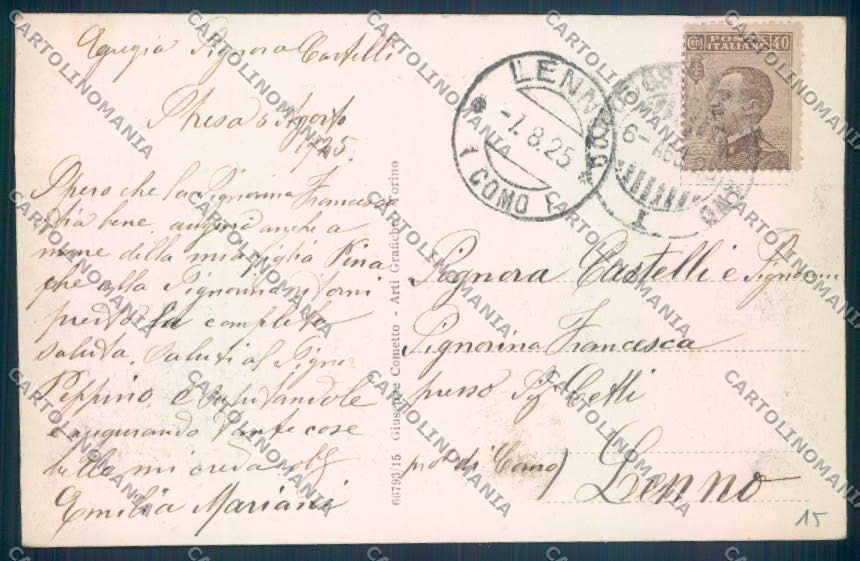 Egregia Signora Castelli
5 Agosto
1925.
Spero che la Signorina Francesca
stia bene, auguri anche a
nome della mia figlia Pina
che alla Signorina ritorni
presto la completa
salute. Saluti al Signor
Peppino e
e augurando tante cose
belle mi creda obb
Emilia Mariani
66793/15 Giuseppe Cometto - Arti Grafiche - Torino
LENNO
-7.8.25
COMO
6- AGO
POSTE
ITALIANE
Cent 40
Signora Castelli e
Signorina Francesca
presso Sig Cetti
Lenno
pro di Como)
15
CARTOLINOMANIA